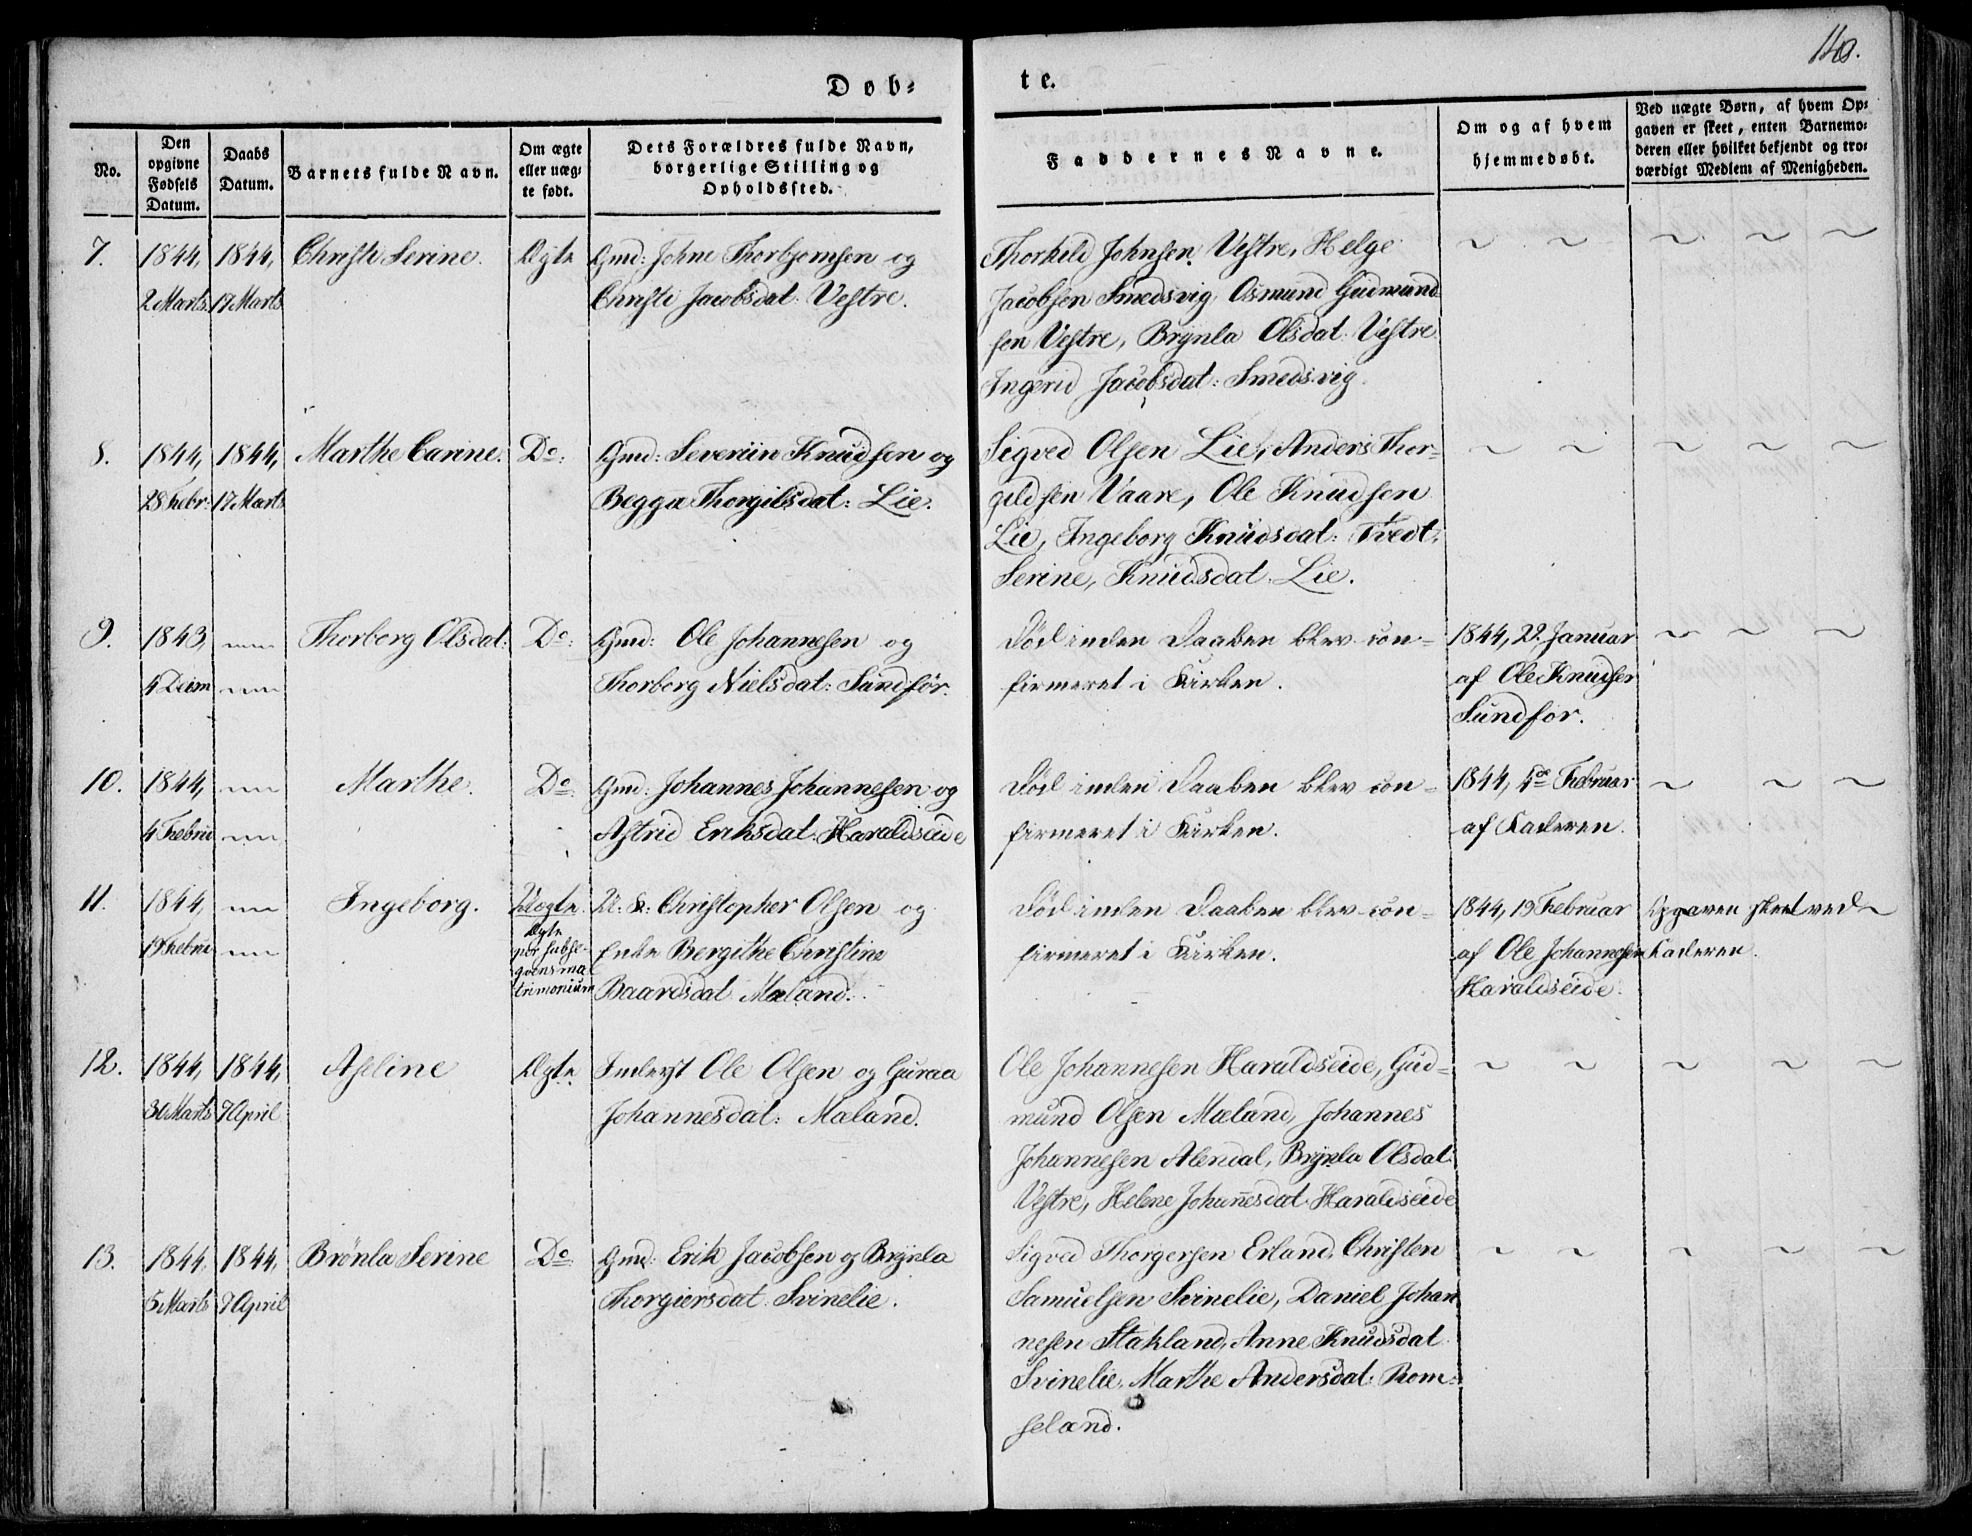 Døb-
te.
No.
Den opgivne Fødsels Datum.
Daabs Datum.
Barnets fulde Navn.
Om ægte eller uæg- te født.
Dets Forældres fulde Navn, borgerlige Stilling og Opholdssted.
Faddernes Navne.
Om og af hvem hjemmedøbt.
Ved uægte Børn, af hvem Op- gaven er skeet, enten Barnemo- deren eller hvilket bekjendt og tro- værdigt Medlem af Menigheden.
7. 1844, 1844, Christi Serine. Ægte Gmd: Johne Thorbjørnsen og
2 Marts. 17 Marts Christi Jacobsdat: Vestre.
Thorkild Johnsen Vestre, Helge
Jacobsen Smedsvig, Osmund Gudmund-
sen Vestre, Brynla Olsdat: Vestre
Ingerid Jacobsdat: Smedsvig.
8. 1844, 1844, Marthe Carine. Do: Gmd: Severiin Knudsen og
28 Febr: 17 Marts Begga Thorgilsdat: Lie.
Sigved Olsen Lie, Anders Thor-
gildsen Vaare, Ole Knudsen
Lie, Ingeborg Knudsdat: Tvedt,
Serine, Knudsdat Lie.
9. 1843, Thorborg Olsdat: Do: Gmd: Ole Johannesen og
4 Decem Thorborg Nielsdat: Sundfør.
Død inden Daaben blev con-
firmeret i Kirken.
1844, 22. Januar
af Ole Knudsen
Sundfør.
10. 1844, Marthe. Do. Gmd: Johannes Johannesen og
4 Febru Astrid Eriksdat: Haraldseide
Død inden Daaben blev con-
firmeret i Kirken.
1844, 4de Februar
af Faderen.
11. 1844, Ingeborg. Uægte. U: K: Christopher Olsen og
19 Febru Ægte per subse- qvens ma- trimonium
Enke Bergithe Christine
Baardsdat Mæland.
Død inden Daaben blev con-
firmeret i Kirken.
1844, 19 Februar
af Ole Johannesen
Haraldseide.
Opgaven skeet ved
Faderen.
12. 1844, 1844, Aseline Ægte. Inderst Ole Olsen og Guraa
30 Marts 7 April Johannesdat: Mæland.
Ole Johannesen Haraldseide, Gud-
mund Olsen Mæland, Johannes
Johannesen Alendal, Brynla Olsdat:
Vestre, Helene Johanesdat Haraldseide
13. 1844. 1844, Brønla Serine Do Gmd: Erik Jacobsen og Brynla
5 Marts 7 April Thorgiersdat. Svinelie.
Sigved Thorgersen Erland, Christen
Samuelsen Svinelie, Daniel Johan-
nesen Stakland, Anne Knudsdat
Svinelie, Marthe Andersdat: Rom-
seland.